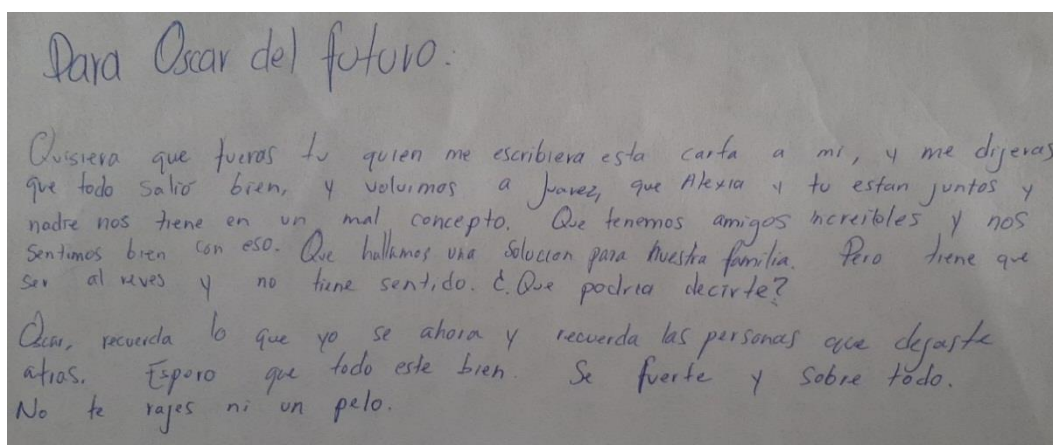 Para Oscar del futuro:
Quisiera que fueras tu quien me escribiera esta carta a mi, y me dijeras
que todo salio bien, y volvimos a Juarez, que Alexia y tu estan juntos y
nadie nos tiene en un mal concepto. Que tenemos amigos increibles y nos
sentimos bien con eso. Que hallamos una solucion para nuestra familia. Pero tiene que
ser al reves y no tiene sentido. ¿Que podria decirte?
Oscar, recuerda lo que yo se ahora y recuerda las personas que dejaste
atras. Espero que todo este bien. Se fuerte y sobre todo.
No te rajes ni un pelo.